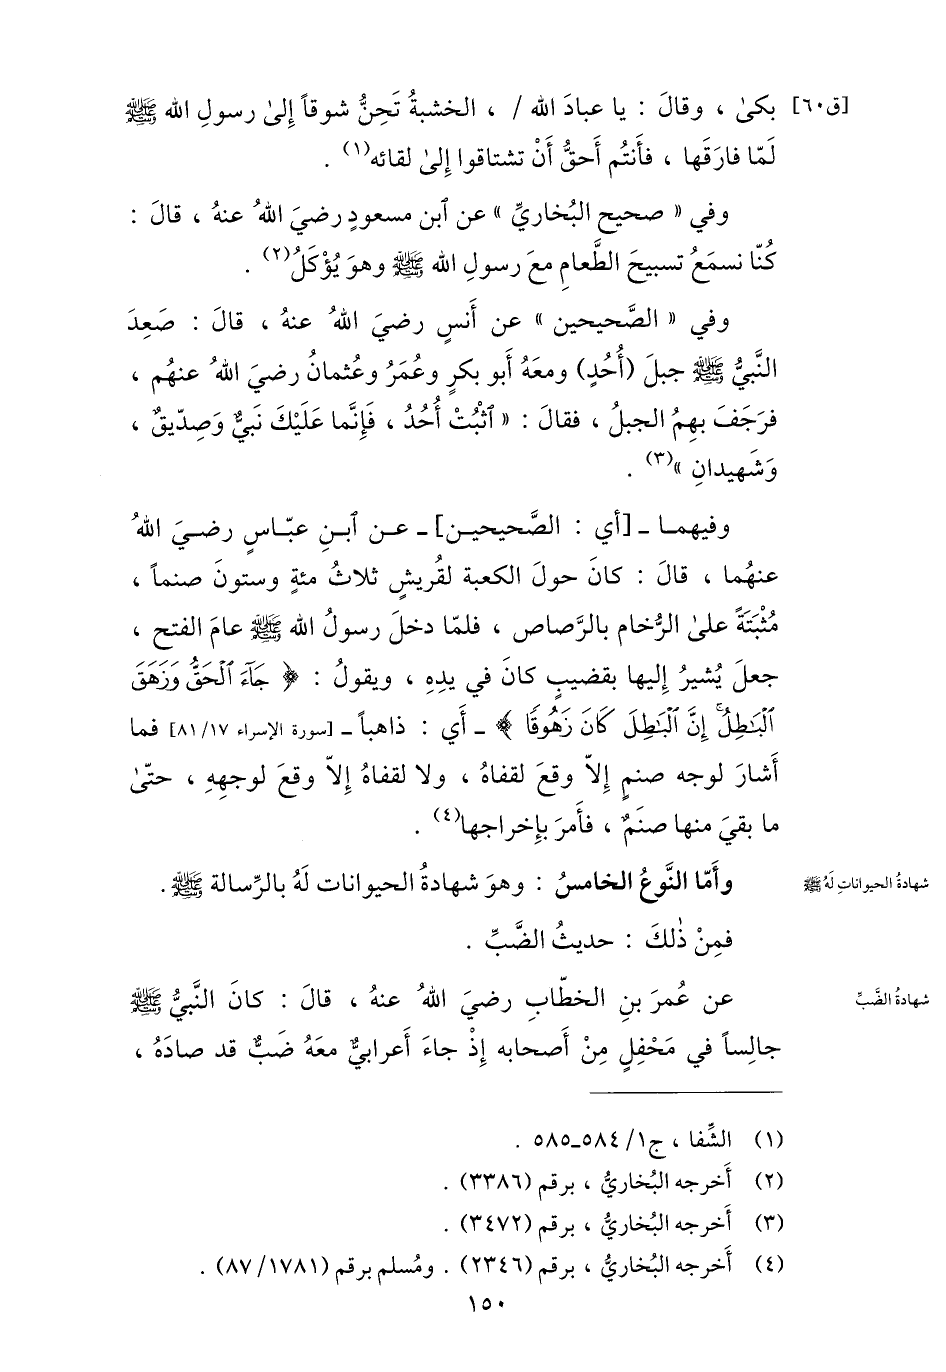 [ق٦٠] بكىٰ ، وقالَ : يا عبادَ الله / ، الخشبةُ تَحِنُّ شوقاً إِلىٰ رسولِ الله ﷺ
لَمّا فارَقَها ، فأَنتُم أَحقُّ أَنْ تشتاقوا إِلىٰ لقائه(١) .
وفي « صحيح البُخاريِّ » عن ٱبن مسعودٍ رضيَ اللهُ عنهُ ، قالَ :
كُنّا نسمَعُ تسبيحَ الطَّعامِ معَ رسولِ الله ﷺ وهوَ يُؤْكَلُ(٢) .
وفي « الصَّحيحين » عن أَنسٍ رضيَ اللهُ عنهُ ، قالَ : صَعِدَ
النَّبيُّ ﷺ جبلَ (أُحُدٍ) ومعَهُ أَبو بكرٍ وعُمَرُ وعُثمانُ رضيَ اللهُ عنهُم ،
فرَجَفَ بهِمُ الجبلُ ، فقالَ : « ٱثْبُتْ أُحُدُ ، فَإِنَّما عَلَيْكَ نَبيٌّ وَصِدّيقٌ ،
وَشَهيدانِ »(٣) .
وفيهما ـ [أي : الصَّحيحين] ـ عن ٱبنِ عبّاسٍ رضيَ اللهُ
عنهُما ، قالَ : كانَ حولَ الكعبة لقُريشٍ ثلاثُ مئةٍ وستونَ صنماً ،
مُثْبَتَةً علىٰ الرُّخام بالرَّصاص ، فلمّا دخلَ رسولُ الله ﷺ عامَ الفتح ،
جعلَ يُشيرُ إِليها بقضيبٍ كانَ في يدِهِ ، ويقولُ : ﴿ جَآءَ ٱلۡحَقُّ وَزَهَقَ
ٱلۡبَٰطِلُۚ إِنَّ ٱلۡبَٰطِلَ كَانَ زَهُوقًا ﴾ ـ أَي : ذاهباً ـ [سورة الإسراء ١٧/ ٨١] فما
أَشارَ لوجه صنمٍ إِلاّ وقعَ لقفاهُ ، ولا لقفاهُ إِلاّ وقعَ لوجههِ ، حتّىٰ
ما بقيَ منها صنَمٌ ، فأَمرَ بإِخراجها(٤) .
وأَمّا النَّوعُ الخامسُ : وهوَ شهادةُ الحيوانات لَهُ بالرِّسالة ﷺ .
شهادةُ الحيواناتِ لَهُ ﷺ
فمِنْ ذٰلكَ : حديثُ الضَّبِّ .
عن عُمرَ بنِ الخطّابِ رضيَ اللهُ عنهُ ، قالَ : كانَ النَّبيُّ ﷺ
شهادةُ الضَّبِّ
جالِساً في مَحْفِلٍ مِنْ أَصحابه إِذْ جاءَ أَعرابيٌّ معَهُ ضَبٌّ قد صادَهُ ،
(١) الشِّفا ، ج١/ ٥٨٤ـ٥٨٥ .
(٢) أَخرجه البُخاريُّ ، برقم (٣٣٨٦) .
(٣) أَخرجه البُخاريُّ ، برقم (٣٤٧٢) .
(٤) أَخرجه البُخاريُّ ، برقم (٢٣٤٦) . ومُسلم برقم (١٧٨١/ ٨٧) .
١٥٠